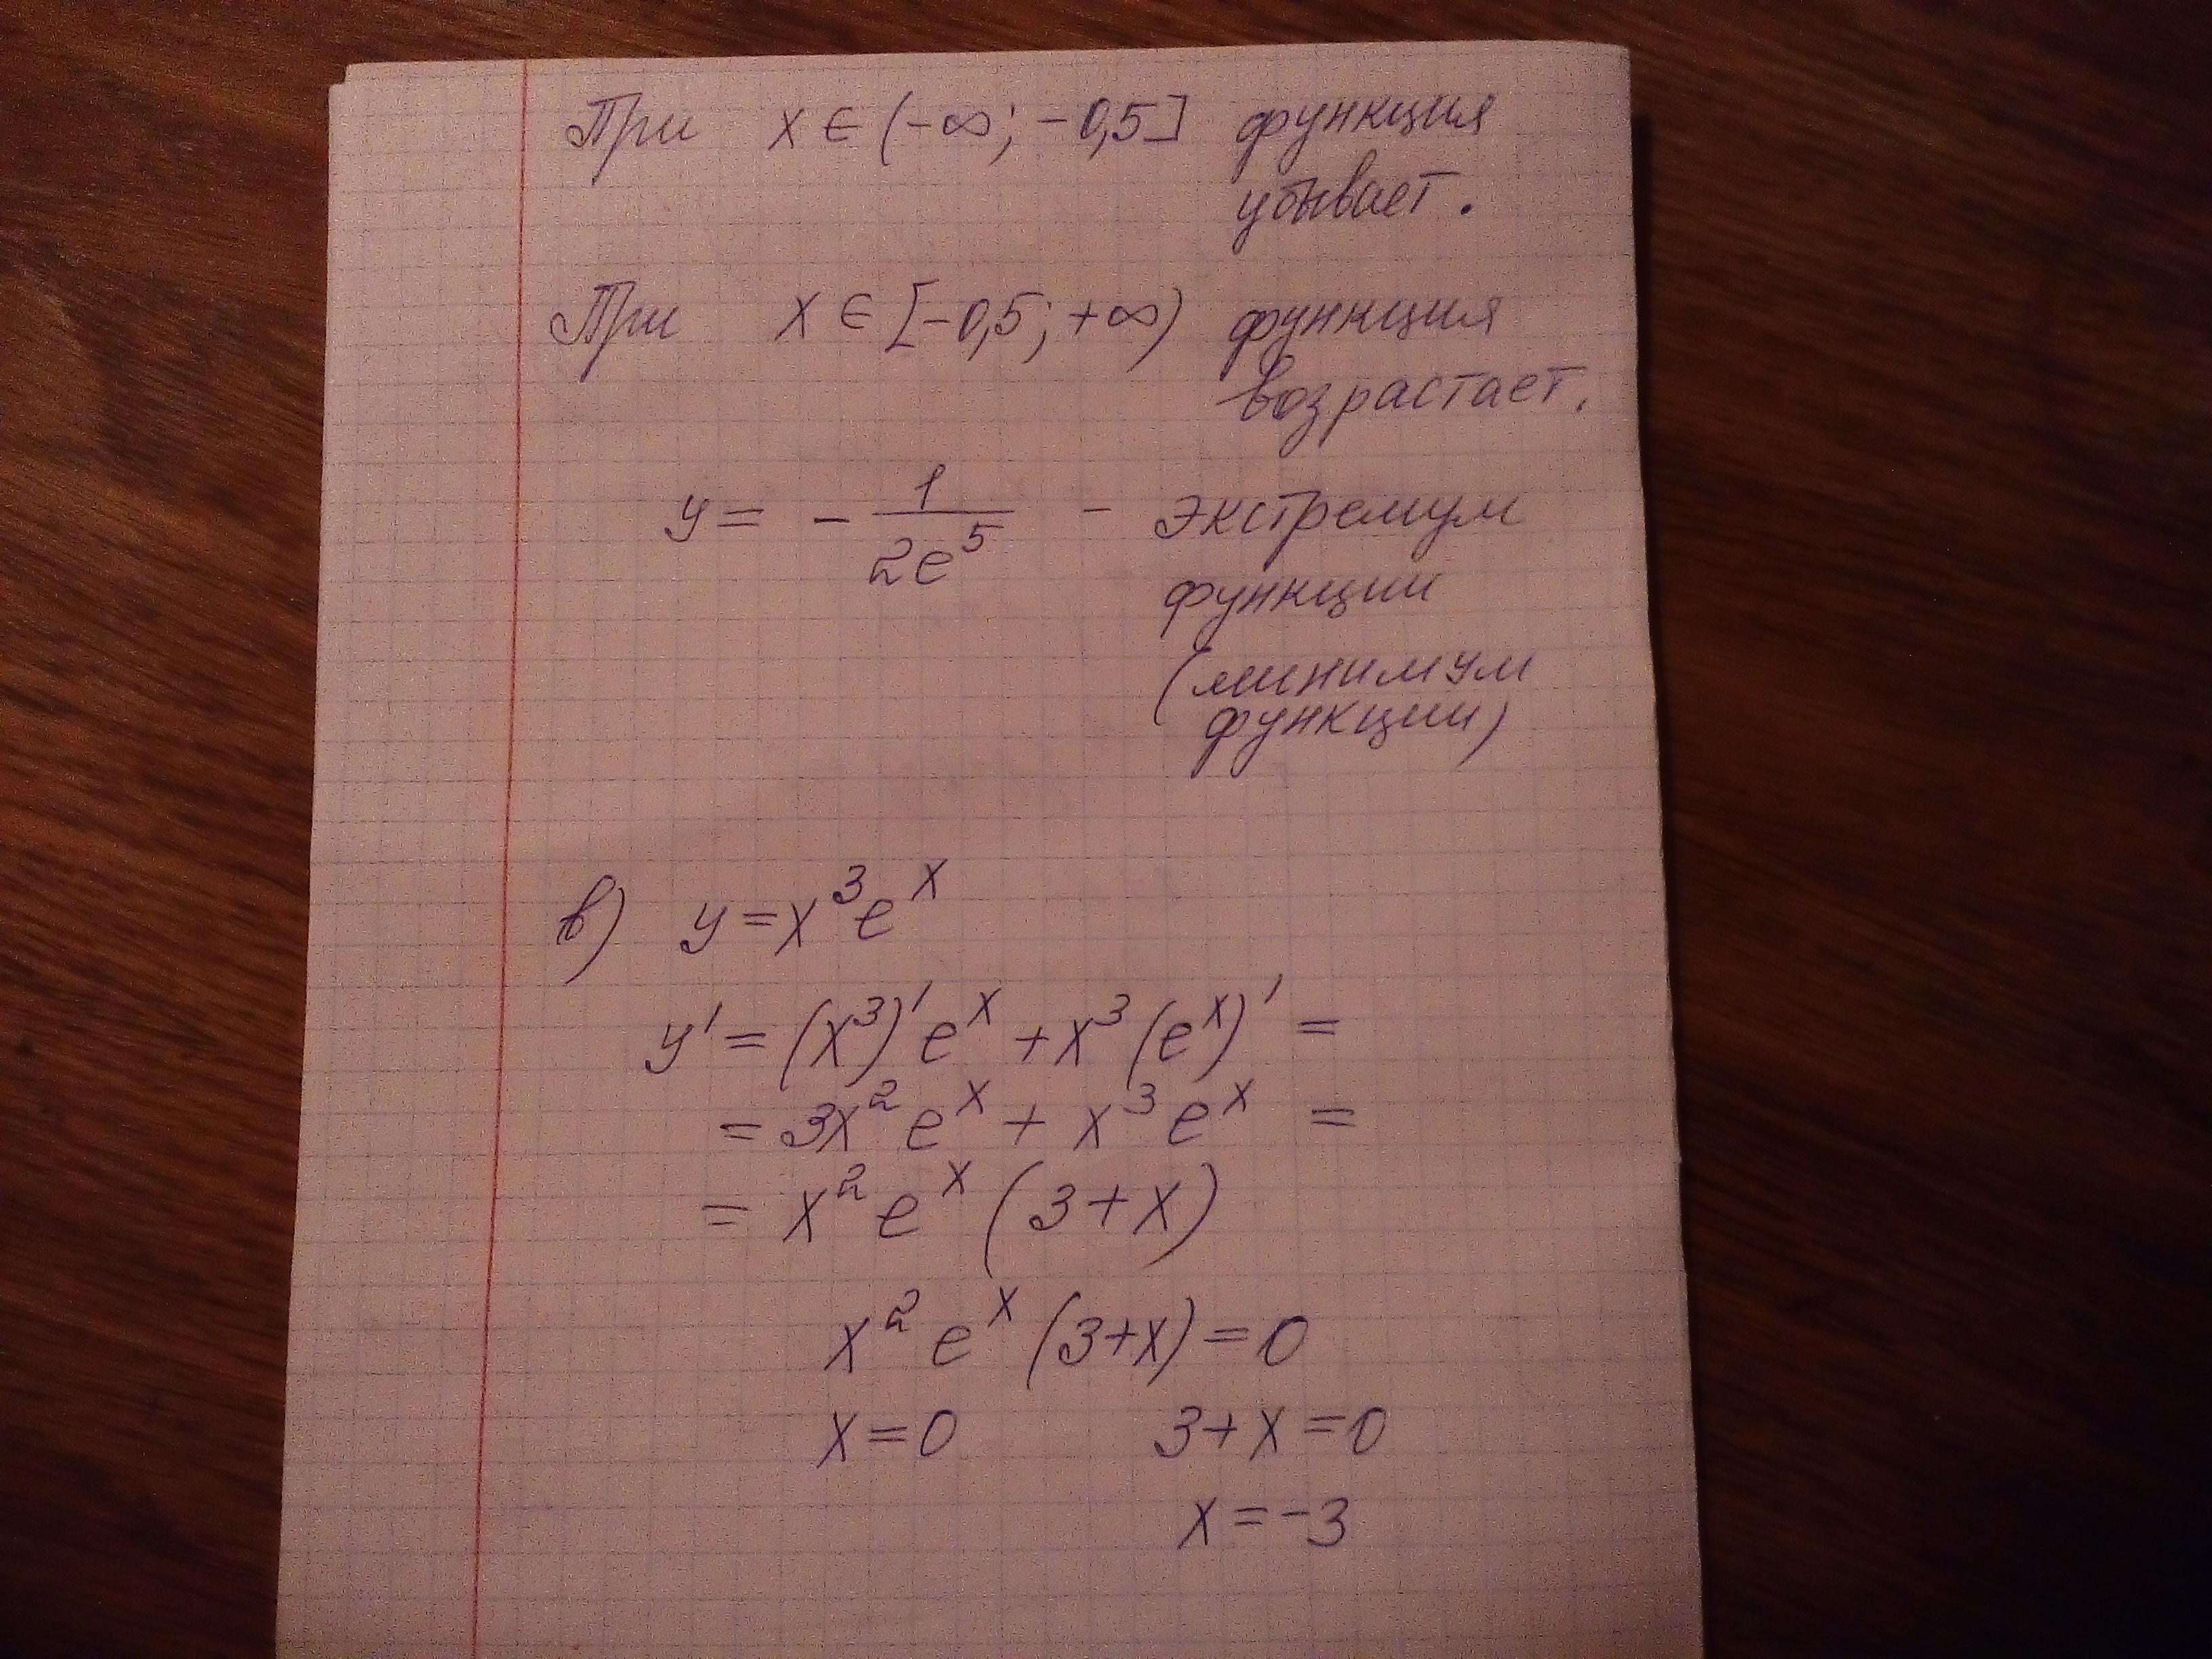 При x ∈ (-∞; -0,5] функция
убывает.
При x ∈ [-0,5; +∞) функция
возрастает.
y = - 1/(2e^5) - экстремум
функции
(минимум
функции)
в) y = x^3 e^x
y' = (x^3)' e^x + x^3 (e^x)' =
= 3x^2 e^x + x^3 e^x =
= x^2 e^x (3+x)
x^2 e^x (3+x) = 0
x = 0 3+x = 0
x = -3